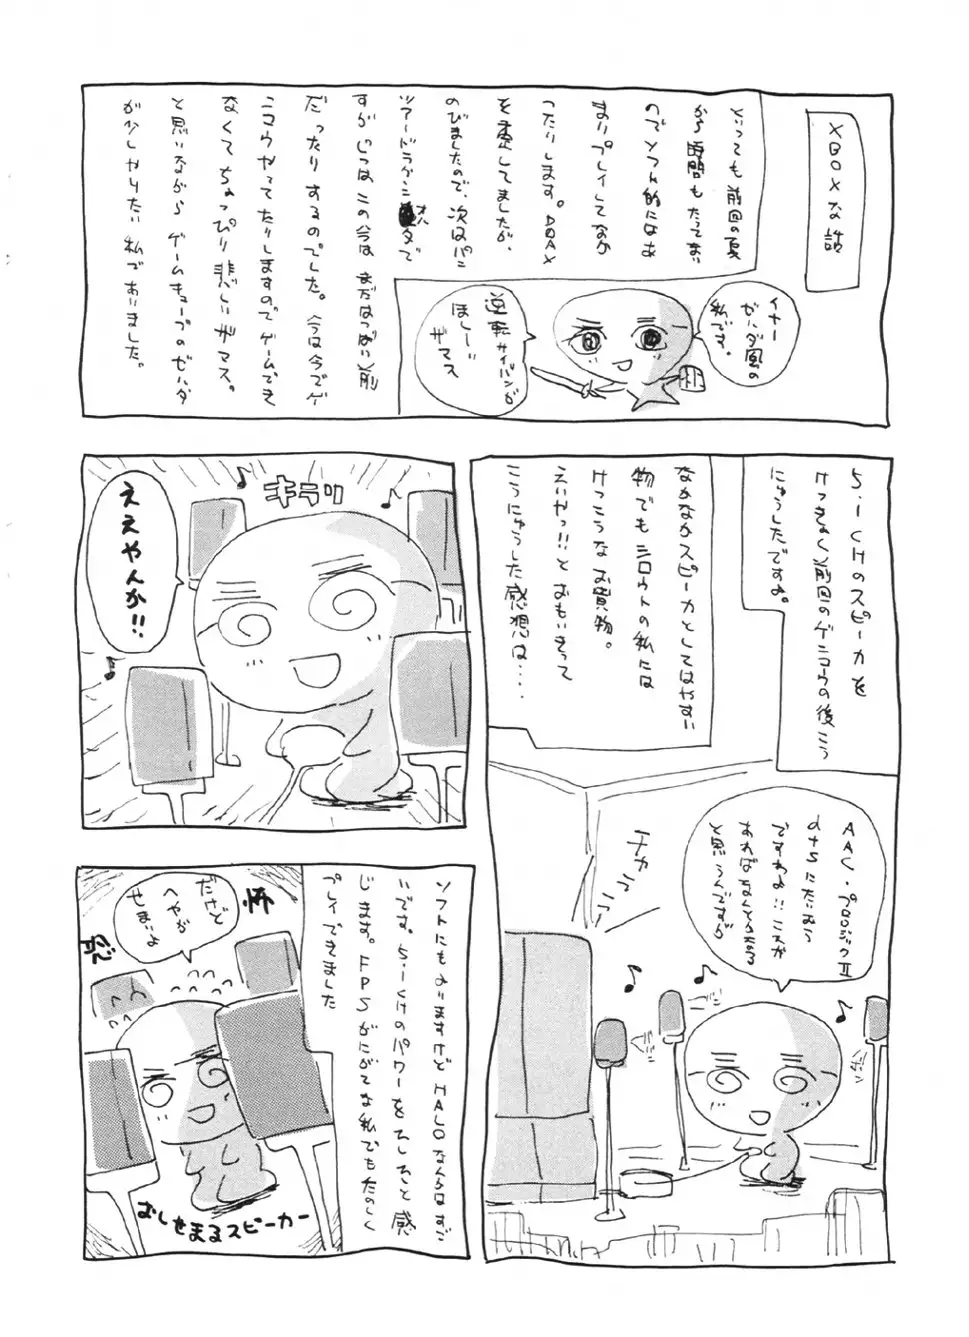 XBOXな話
といっても前回の夏
から時間もたってない
のでソフト的にはあ
まりプレイしてなか
ったりします。DOAX
を愛してましたが、
のびましたので、次はパン
ツァードラグーンオルタで
すが じつは この今は まだはつばい前
だったりするのでした。今は今でゲ
ンコウやってたりしますのでゲームでき
なくてちょっぴり悲しいザマス。
と思いながら ゲームキューブのゼルダ
が少しやりたい 私でありました。
イナー
ゼルダ風の
私です。
逆転サイバンが
ほしーい
ザマス
5.1CHのスピーカを
けっきょく前回のゲンコウの後こう
にゅうしたですよ。
なかなかスピーカとしてはやすい
物でも シロウトの私には
けっこうなお買物。
えいやっ!!と おもいきって
こうにゅうした感想は・・・・
AAC・プロロジックⅡ
dtsにたいおう
ですわよ!! これが
あればなんとかなる
と思うんですが
チカ
キラリ
ええやんか!!
ソフトにもよりますけど HALOなんかはすご
いです。5.1CHのパワーをひしひしと感
じます。FPSがにがてな私でもたのしく
プレイできました
だけど
へやが
せまいよ
怖
おしせまるスピーカー